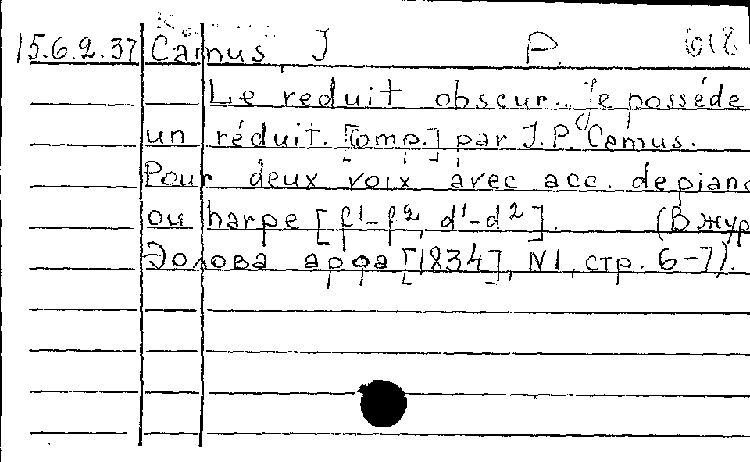 15.6.2.37 Camus, J P. 618
Le reduit obscur. Je posséde
un réduit. [Comp.] par J.P. Camus.
Pour deux voix avec acc. de piano
ou harpe [f¹-f², d¹-d²]. (В жур
Эолова арфа [1834], N1, стр. 6-7).